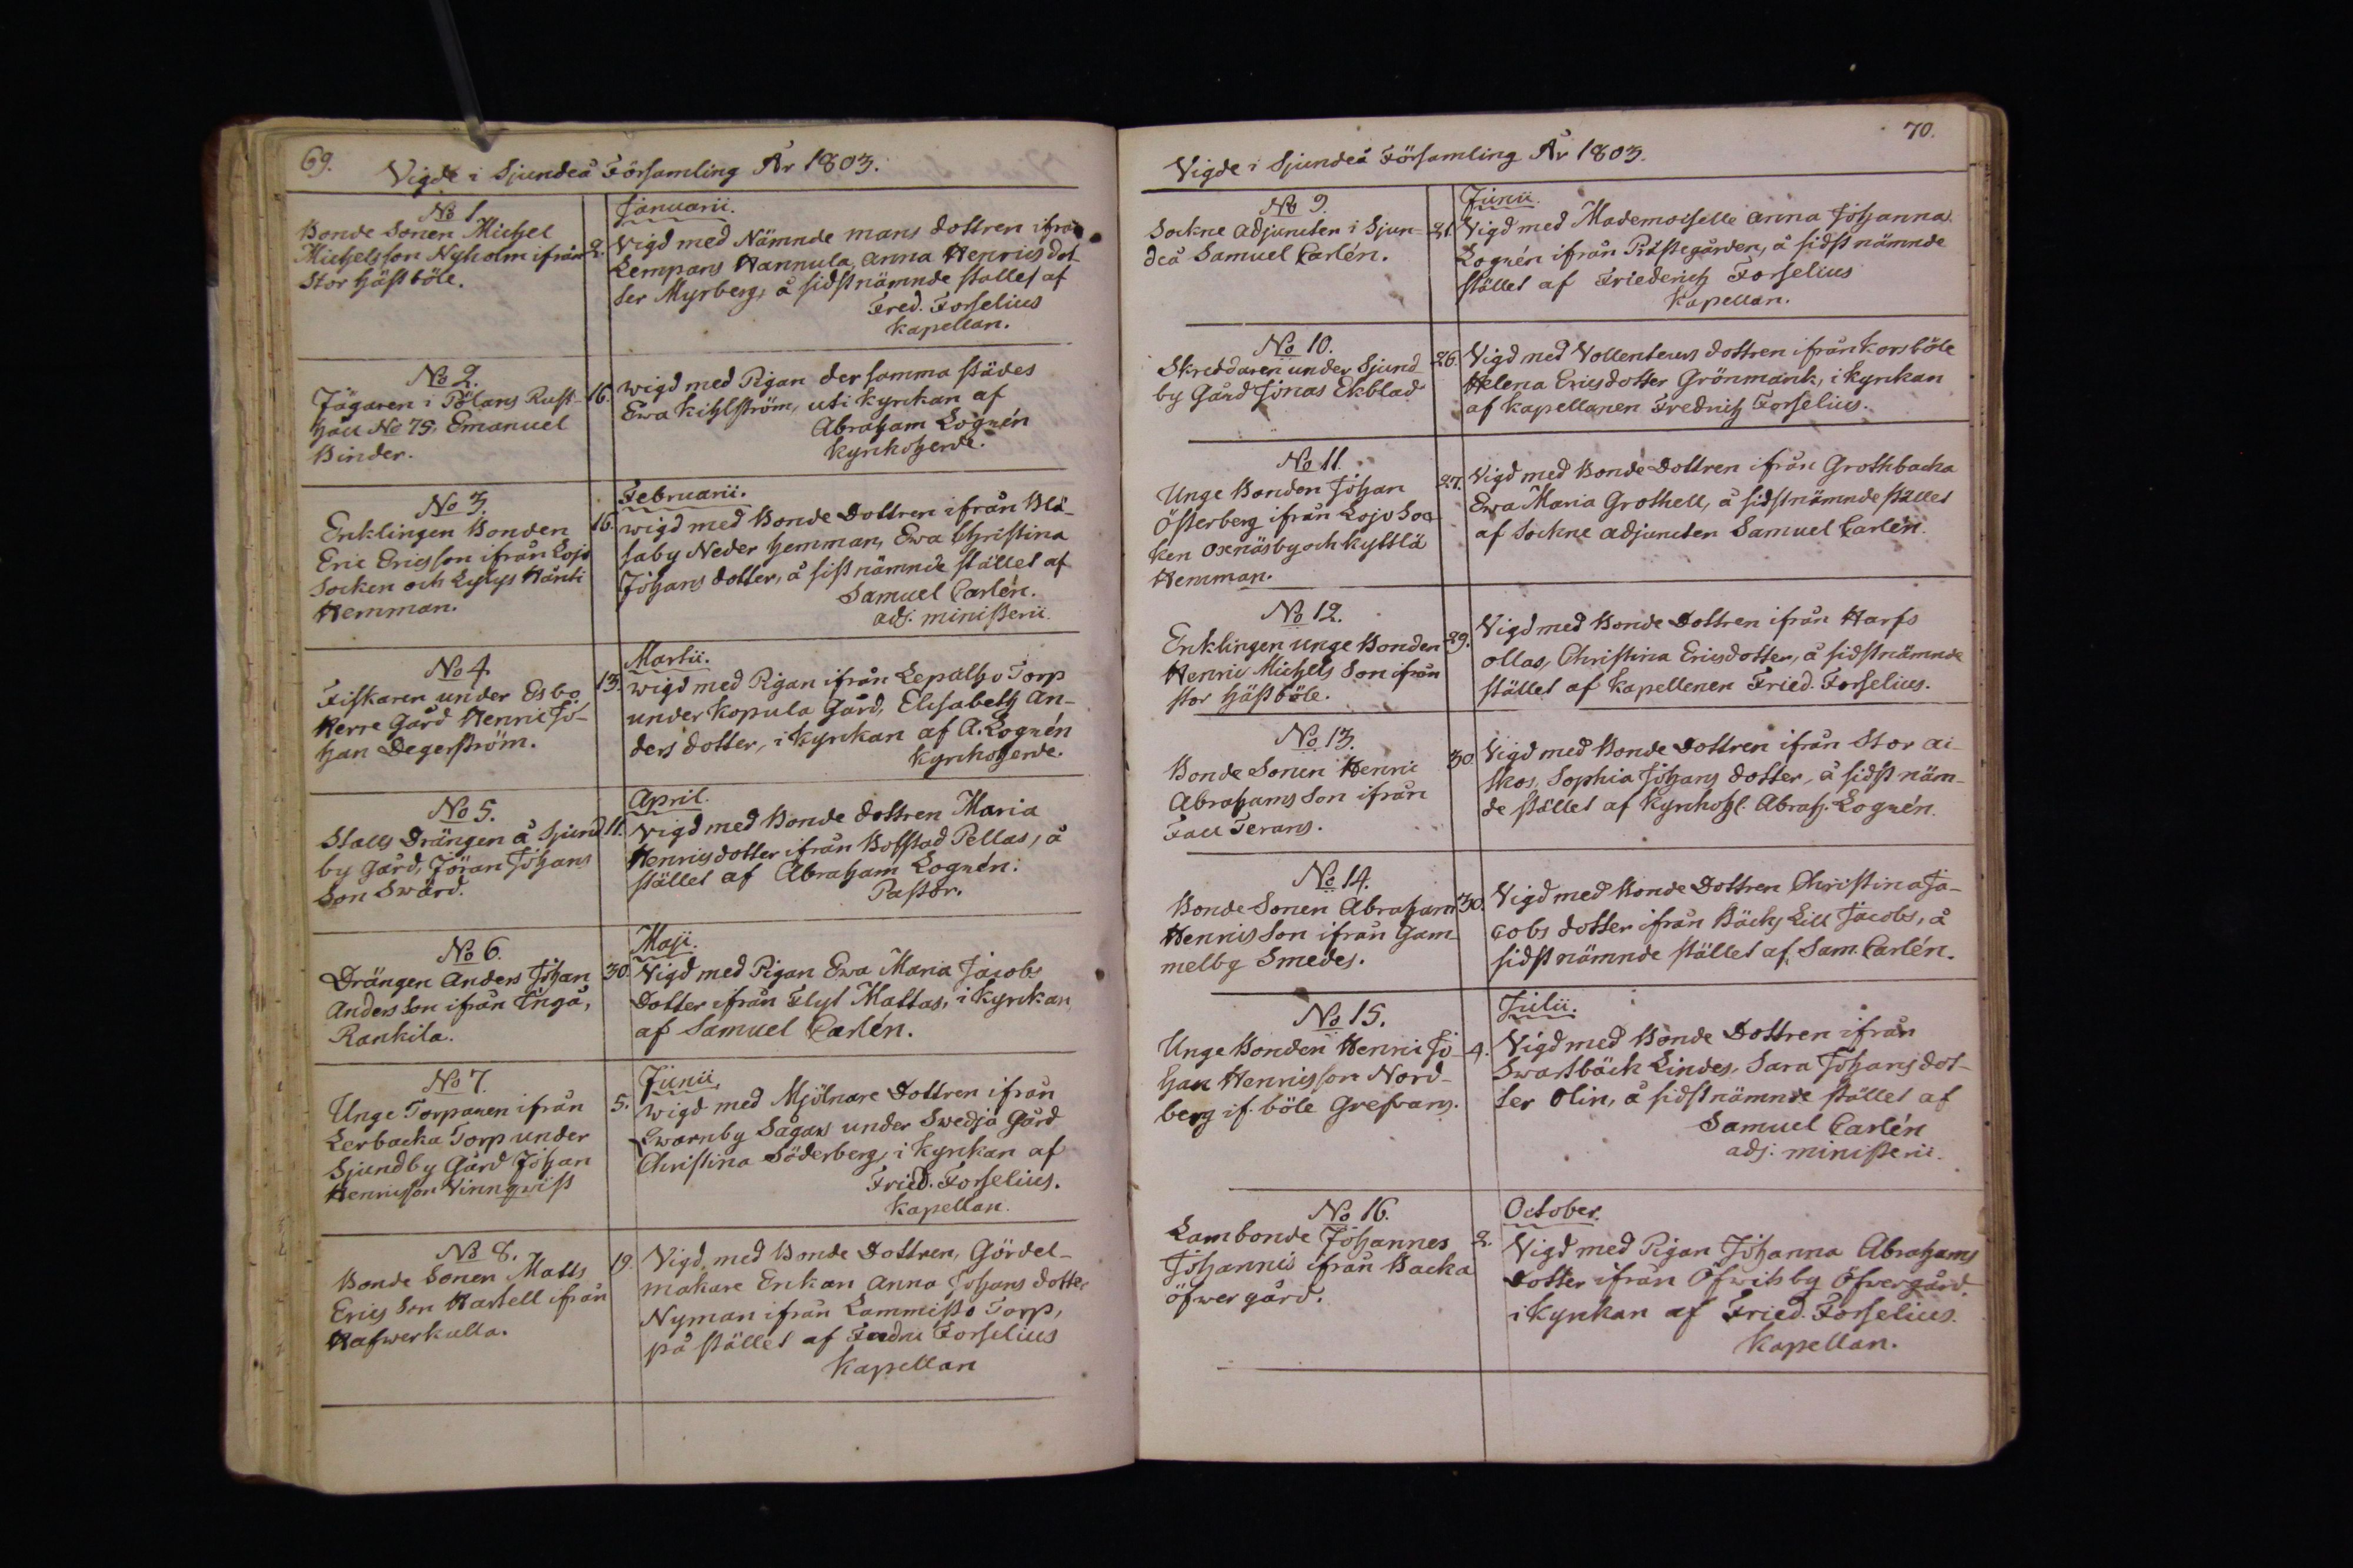 69.
Vigde i Sjundeå Församling År 1803.
No 1.
Bonde Sonen Michel
Michelsson Nyholm ifrån
Stor häстböle.
Januarii.
2. Vigd med Nämnde mans dottren ifrån
Lempans Hannula, Anna Henrics dot-
ter Myrberg, å sidstnämnde stället af
Fred. Forselius
Kapellan.
No 2.
Jägaren i Pölans Rust-
håll No 75, Emanuel
Binder.
16. wigd med Pigan der samma städes
Ewa Kihlström, uti Kyrkan af
Abraham Lognén
Kyrkoherde.
No 3.
Enklingen Bonden
Eric Ericsson ifrån Lojo
Socken och Lylys Hänti
Hemman.
Februarii.
16. wigd med Bonde Dottren ifrån Blä-
saby Neder hemman, Ewa Christina
Johans dotter, å sistnämnde stället af
Samuel Carlén.
adj. ministerii.
No 4.
Fiskaren under Esbo
Herre Gård Henric Jo-
han Degerström.
Martii.
13. wigd med Pigan ifrån Lepalho Torp
under Kopula Gård, Elisabeth An-
ders dotter, i Kyrkan af A. Lognén
Kyrkoherde.
No 5.
Stalls Drängen å Sjund
by gård, Jöran Johans
Son Swärd.
April.
11. Vigd med Bonde dottren Maria
Henricsdotter ifrån Bolstad Pellas, å
stället af Abraham Lognén.
Pastor.
No 6.
Drängen Anders Johan
Anders Son ifrån Ingå,
Rankila.
Maji.
30. Vigd med Pigan Ewa Maria Jacobs
Dotter ifrån Flyt Mattas, i Kyrkan
af Samuel Carlén.
No 7.
Unge Torparen ifrån
Lerbacka Torp under
Sjundby Gård Johan
Henricsson Vinnqwist
Junii.
5. wigd med Mjölnare Dottren ifrån
Qwarnby Sågars under Swedja Gård
Christina Söderberg, i Kyrkan af
Fried. Forselius.
Kapellan.
No 8.
Bonde Sonen Matts
Erics Son Hartell ifrån
Hafwerkulla.
19. Vigd med Bonde Dottren, Gördel-
makare Enkan Anna Johans dotter
Nyman ifrån Lammisto Torp,
på stället af Fredric Forselius
Kapellan
70.
Vigde i Sjundeå Församling År 1803.
No 9.
Sockne Adjuncten i Sjun-
deå Samuel Carlén.
Junii.
21. Vigd med Mademoiselle Anna Johanna
Lognén ifrån Prästegården, å sidstnämnde
stället af Friederich Forselius
Kapellan.
No 10.
Skreddaren under Sjund
by Gård Jonas Ekblad
26. Vigd med Vollenteurs dottren ifrån Korsböle
Helena Ericsdotter Grönmark, i Kyrkan
af Kapellanen Fredrich Forselius.
No 11.
Unge Bonden Johan
Österberg ifrån Lojo Soc
ken Oxnäsby och Kyttlä
Hemman.
27. Vigd med Bonde Dottren ifrån Grothbacka
Ewa Maria Grothell, å sidstnämnde stället
af Sockne adjuncten Samuel Carlén.
No 12.
Enklingen unge Bonden
Henric Michels Son ifrån
stor hästböle.
29. Vigd med Bonde Dottren ifrån Harfs
ollas, Christina Ericsdotter, å sidstnämnde
stället af Kapellenen Fried. Forselius.
No 13.
Bonde Sonen Henric
Abrahams Son ifrån
Fall Terans.
30. Vigd med Bonde Dottren ifrån Stor ai-
skos, Sophia Johans dotter, å sidst näm-
de stället af Kyrkoh. Abrah. Lognén.
No 14.
Bonde Sonen Abraham
Henrics Son ifrån Gam-
melby Smedes.
30. Vigd med Bonde Dottren Christina Ja-
cobs dotter ifrån Bäcks Lill Jacobs, å
sidstnämnde stället af Sam. Carlén.
No 15.
Unge Bonden Henric Jo-
han Henricsson Nord-
berg if. böle Grefvars.
Julii.
4. Vigd med Bonde Dottren ifrån
Swartbäck Lindes, Sara Johans dot-
ter Olin, å sidstnämnde stället af
Samuel Carlén
adj. ministerii.
No 16.
Lambonde Johannes
Johannis ifrån Backa
öfwer gård.
October.
2. Vigd med Pigan Johanna Abrahams
Dotter ifrån Öfwitsby Öfvergård.
i Kyrkan af Fried. Forselius.
Kapellan.